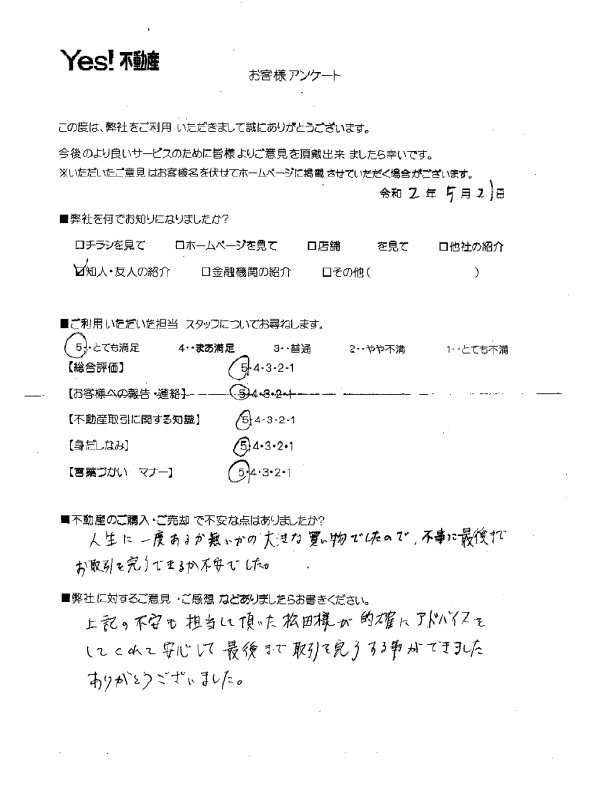 Yes! 不動産
お客様アンケート
この度は、弊社をご利用 いただきまして誠にありがとうございます。
今後のより良いサービスのために皆様よりご意見を頂戴出来 ましたら幸いです。
※いただいたご意見はお客様名を伏せてホームページに掲載 させていただく場合がございます。
令和 2 年 5 月 21日
■弊社を何でお知りになりましたか?
□チラシを見て □ホームページを見て □店舗 を見て □他社の紹介
☑知人・友人の紹介 □金融機関の紹介 □その他( )
■ご利用いただいた担当 スタッフについてお尋ねします。
5・・とても満足 4・・まあ満足 3・・普通 2・・やや不満 1・・とても不満
【総合評価】 5・4・3・2・1
【お客様への報告・連絡】 5・4・3・2・1
【不動産取引に関する知識】 5・4・3・2・1
【身だしなみ】 5・4・3・2・1
【言葉づかい マナー】 5・4・3・2・1
■不動産のご購入・ご売却 で不安な点はありましたか?
人生に一度あるか無いかの大きな買い物でしたので、不事に最後まで
お取引を完うできるか不安でした。
■弊社に対するご意見 ・ご感想 などありましたらお書きください。
上記の不安も担当して頂いた松田様が的確にアドバイスを
してくれて安心して最後まで取引を完うする事ができました
ありがとうございました。